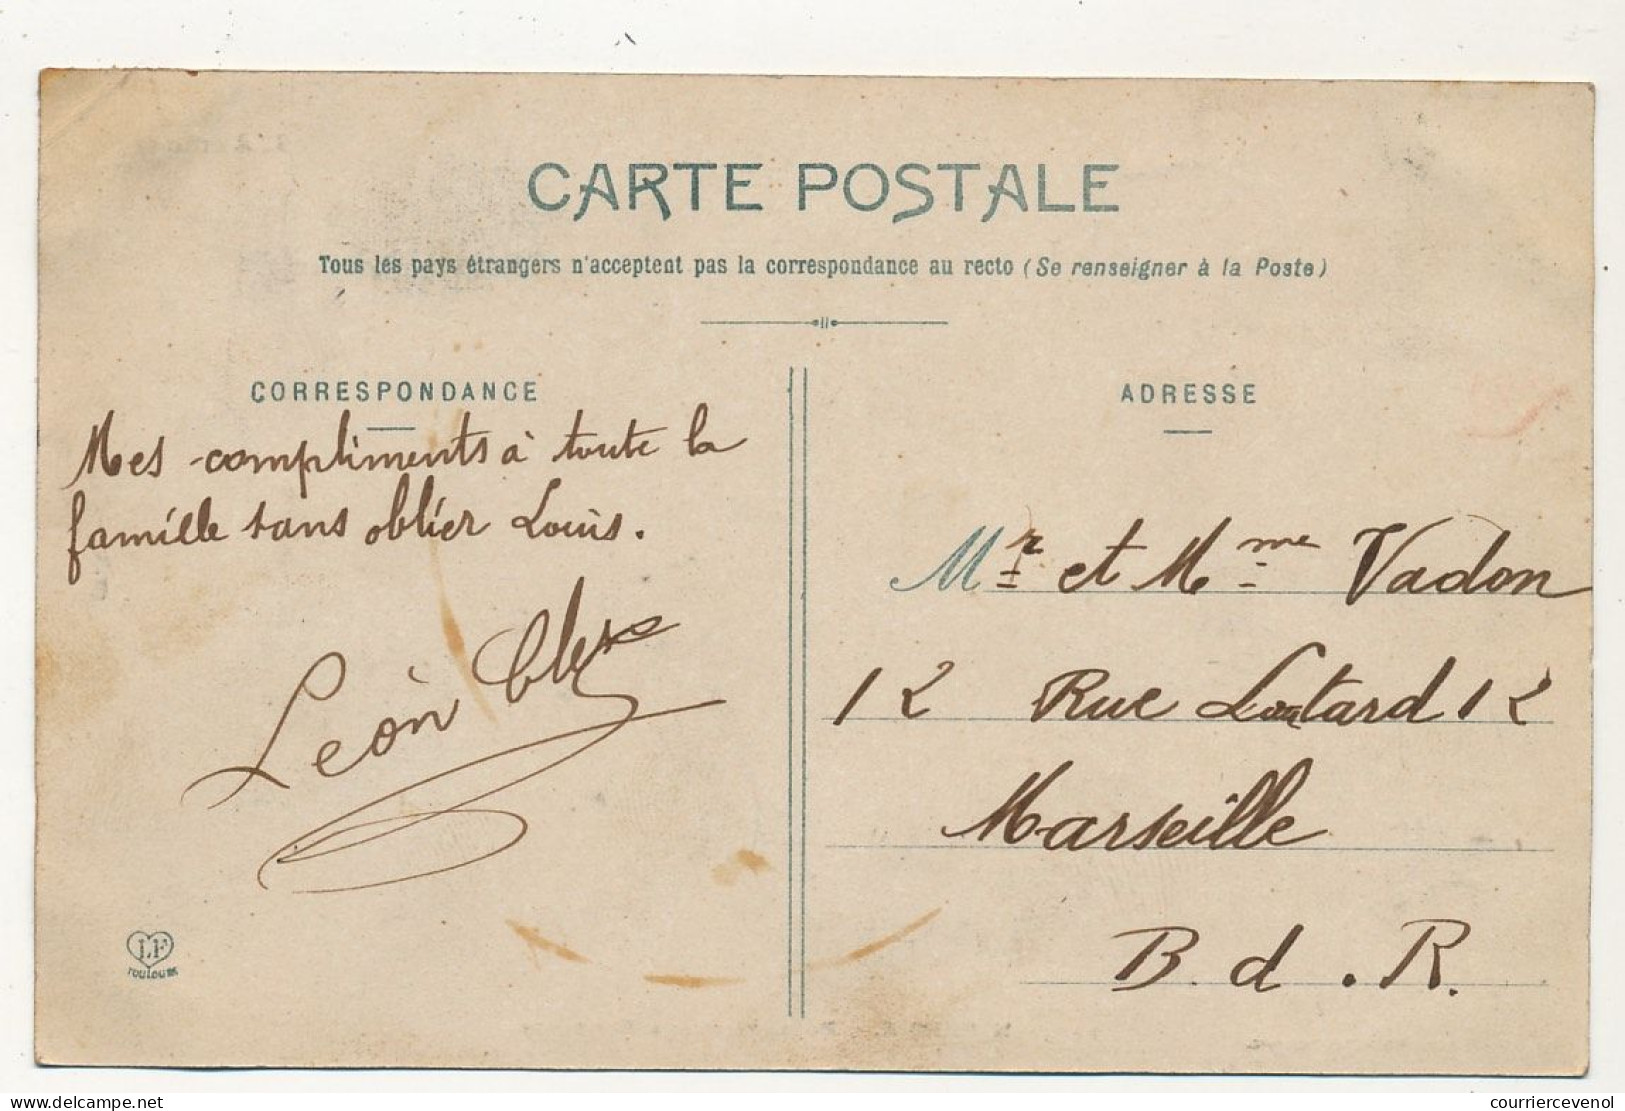 CARTE POSTALE
Tous les pays étrangers n'acceptent pas la correspondance au recto (Se renseigner à la Poste)
CORRESPONDANCE
Mes compliments à toute la
famille sans oblier Louis.
Léon
LF
TOULOUSE
ADRESSE
Mr et Mme Vadon
12 Rue Loutard 12
Marseille
B. d. R.
www.delcampe.net
courriercevenol